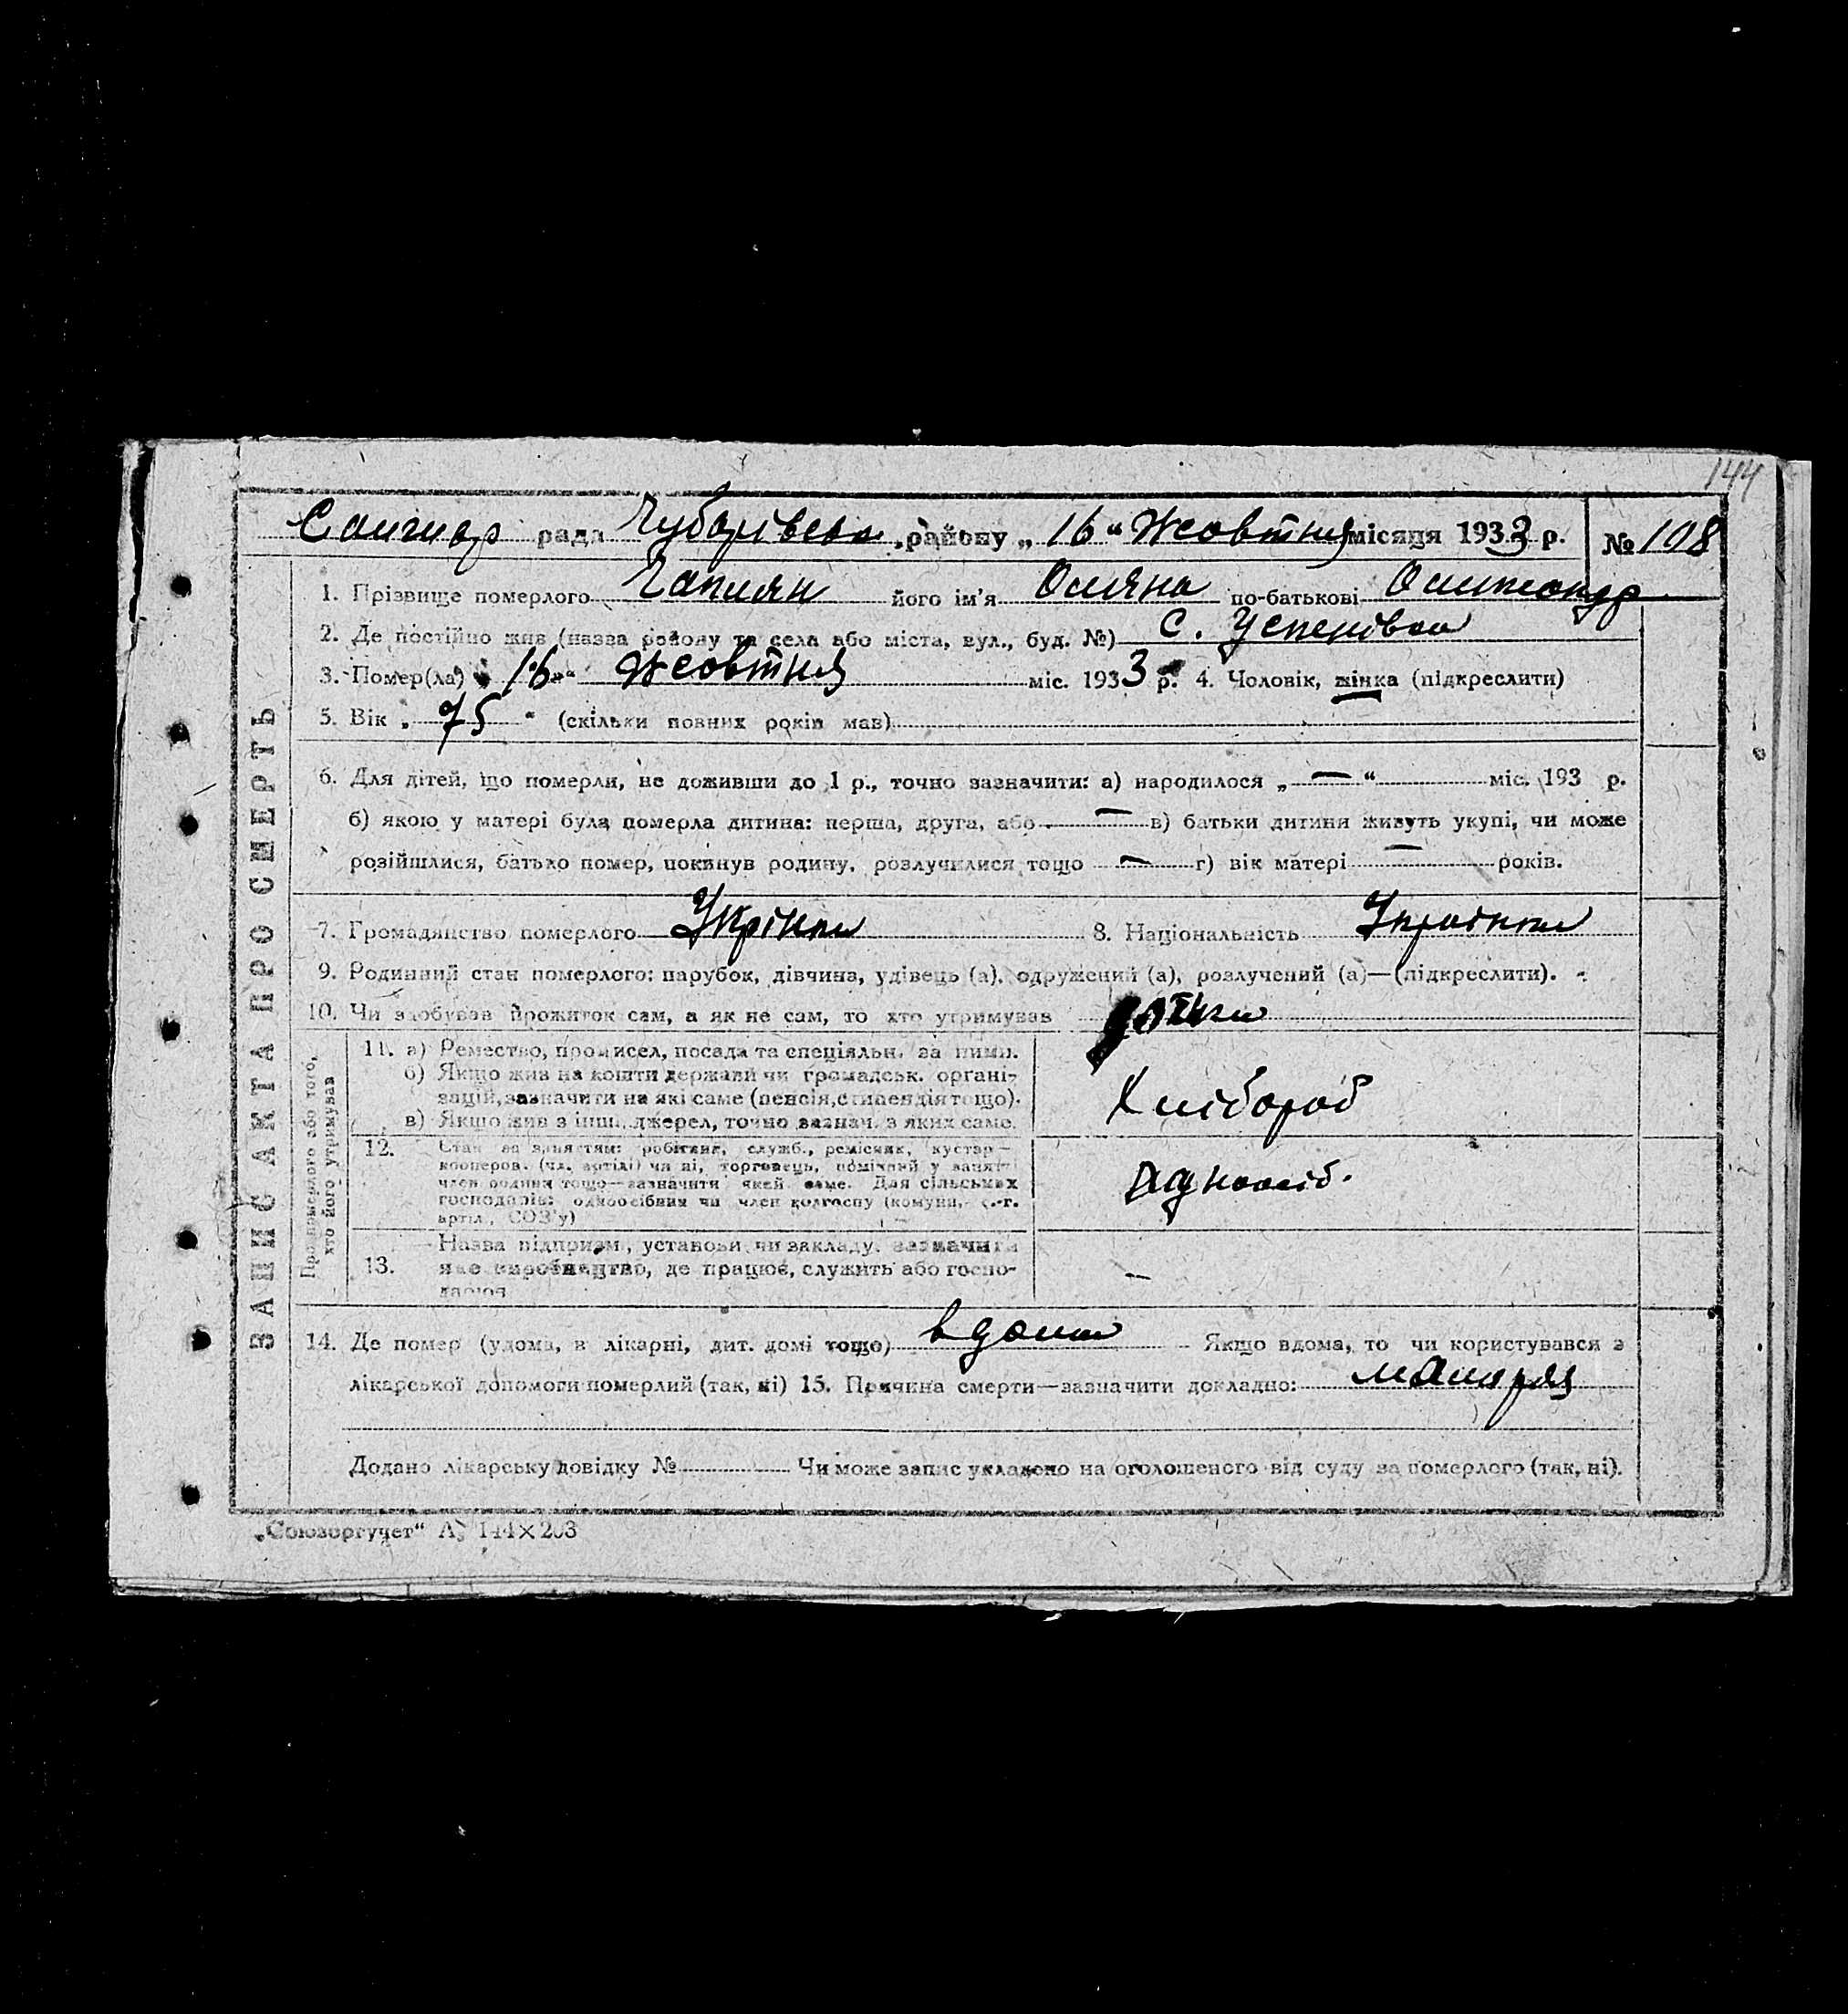 144
рада Чубарівська району „16“ Жовтня місяця 1933 р. № 108
1. Прізвище померлого його ім'я по-батькові
2. Де постійно жив (назва району та села або міста, вул., буд. №) с. Успенівка
3. Помер(ла) „16“ Жовтня міс. 1933 р. 4. Чоловік, жінка (підкреслити)
5. Вік „75“ (скільки повних років мав)
6. Для дітей, що померли, не доживши до 1 р., точно зазначити: а) народилося „—“ міс. 193 р.
б) якою у матері була померла дитина: перша, друга, або — в) батьки дитини живуть укупі, чи може
розійшлися, батько помер, покинув родину, розлучилися тощо — г) вік матері — років.
7. Громадянство померлого Укрінка 8. Національність Українка
9. Родинний стан померлого: парубок, дівчина, удівець (а), одружений (а), розлучений (а)—(підкреслити).
10. Чи здобував прожиток сам, а як не сам, то хто утримував
ЗАПИС АКТА ПРО СМЕРТЬ
Про померлого або того,
хто його утримував
11. а) Ремество, промисел, посада та спеціяльн. за ними.
б) Якщо жив на кошти держави чи громадськ. органі-
зацій, зазначити на які саме (пенсія, стипендія тощо).
в) Якщо жив з інш. джерел, точно зазнач. з яких само.
Хлібороб
12. Стан за заняттям: робітник, служб., ремісник, кустар—
кооперов. (чл. артілі) чи ні, торговець, помічний у занят-
член родини тощо—зазначити якей саме. Для сільських
господарів: одноосібник чи член колгоспу (комуни, с.-г.
артіл., СОЗ'у)
одноосіб.
13. Назва підприєм., установи, чи закладу, зазначити
яке виробництво, де працює, служить або госпо-
дарює
—
14. Де помер (удома, в лікарні, дит. домі тощо) вдома Якщо вдома, то чи користувався з
лікарської допомоги померлий (так, ні) 15. Причина смерти—зазначити докладно: малярія
Додано лікарську довідку № Чи може запис укладено на оголошеного від суду за померлого (так, ні).
„Союзоргучет“ А5 144×203